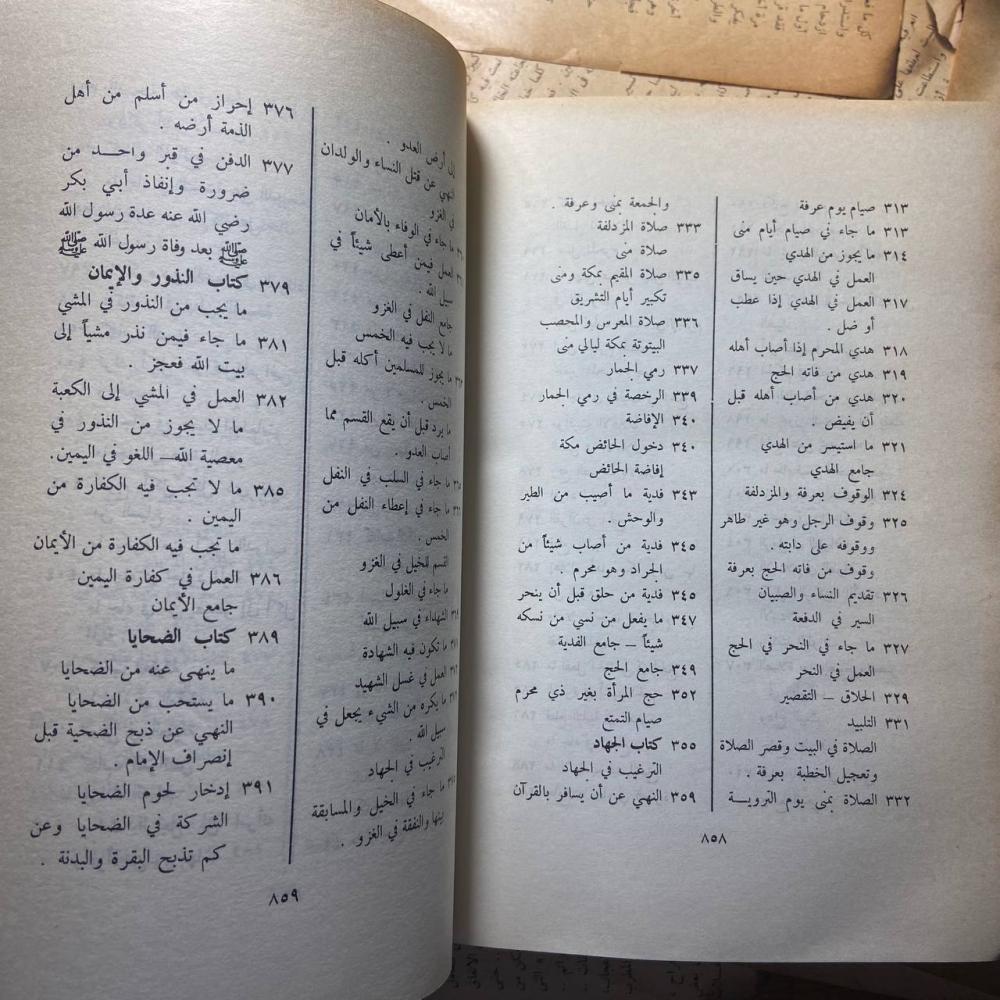 ٣١٣ صيام يوم عرفة
٣١٣ ما جاء في صيام أيام منى
٣١٤ ما يجوز من الهدي
العمل في الهدي حين يساق
٣١٧ العمل في الهدي إذا عطب
أو ضل .
٣١٨ هدي المحرم إذا أصاب أهله
٣١٩ هدي من فاته الحج
٣٢٠ هدي من أصاب أهله قبل
أن يفيض .
٣٢١ ما استيسر من الهدي
جامع الهدي
٣٢٤ الوقوف بعرفة والمزدلفة
٣٢٥ وقوف الرجل وهو غير طاهر
ووقوفه على دابته .
وقوف من فاته الحج بعرفة
٣٢٦ تقديم النساء والصبيان
السير في الدفعة
٣٢٧ ما جاء في النحر في الحج
العمل في النحر
٣٢٩ الحلاق – التقصير
٣٣١ التلبيد
الصلاة في البيت وقصر الصلاة
وتعجيل الخطبة بعرفة .
٣٣٢ الصلاة بمنى يوم التروية
والجمعة بمنى وعرفة .
٣٣٣ صلاة المزدلفة
صلاة منى
٣٣٥ صلاة المقيم بمكة ومنى
تكبير أيام التشريق
٣٣٦ صلاة المعرس والمحصب
البيتوتة بمكة ليالي منى
٣٣٧ رمي الجمار
٣٣٩ الرخصة في رمي الجمار
٣٤٠ الإفاضة
٣٤٠ دخول الحائض مكة
إفاضة الحائض
٣٤٣ فدية ما أصيب من الطير
والوحش .
٣٤٥ فدية من أصاب شيئاً من
الجراد وهو محرم .
٣٤٥ فدية من حلق قبل أن ينحر
٣٤٧ ما يفعل من نسي من نسكه
شيئاً – جامع الفدية
٣٤٩ جامع الحج
٣٥٢ حج المرأة بغير ذي محرم
صيام التمتع
٣٥٥ كتاب الجهاد
الترغيب في الجهاد
٣٥٩ النهي عن أن يسافر بالقرآن
٨٥٨
إلى أرض العدو .
النهي عن قتل النساء والولدان
في الغزو
ما جاء في الوفاء بالأمان
العمل فيمن أعطى شيئاً في
سبيل الله .
جامع النفل في الغزو
ما لا يجب فيه الخمس
ما يجوز للمسلمين أكله قبل
الخمس .
ما يرد قبل أن يقع القسم مما
أصاب العدو .
ما جاء في السلب في النفل
ما جاء في إعطاء النفل من
الخمس .
القسم للخيل في الغزو
ما جاء في الغلول
الشهداء في سبيل الله
ما تكون فيه الشهادة
العمل في غسل الشهيد
ما يكره من الشيء يجعل في
سبيل الله .
الترغيب في الجهاد
ما جاء في الخيل والمسابقة
بينها والنفقة في الغزو .
٣٧٦ إحراز من أسلم من أهل
الذمة أرضه .
٣٧٧ الدفن في قبر واحد من
ضرورة وإنفاذ أبي بكر
رضي الله عنه عدة رسول الله
ﷺ بعد وفاة رسول الله ﷺ
٣٧٩ كتاب النذور والإيمان
ما يجب من النذور في المشي
٣٨١ ما جاء فيمن نذر مشياً إلى
بيت الله فعجز .
٣٨٢ العمل في المشي إلى الكعبة
ما لا يجوز من النذور في
معصية الله – اللغو في اليمين.
٣٨٥ ما لا تجب فيه الكفارة من
اليمين .
ما تجب فيه الكفارة من الأيمان
٣٨٦ العمل في كفارة اليمين
جامع الأيمان
٣٨٩ كتاب الضحايا
ما ينهى عنه من الضحايا
٣٩٠ ما يستحب من الضحايا
النهي عن ذبح الضحية قبل
إنصراف الإمام .
٣٩١ إدخار لحوم الضحايا
الشركة في الضحايا وعن
كم تذبح البقرة والبدنة .
٨٥٩